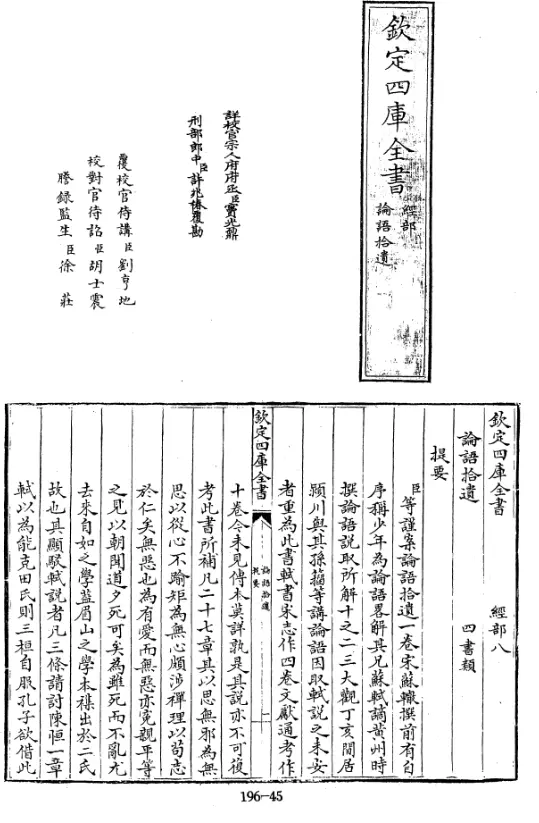 欽定四庫全書
經部
論語拾遺
詳校官宗人府府丞臣竇光鼐
刑部郎中臣許兆椿覆勘
覆校官侍講臣劉亨地
校對官待詔臣胡士震
謄錄監生臣徐莊
欽定四庫全書 經部八
論語拾遺 四書類
提要
臣等謹案論語拾遺一卷宋蘇轍撰前有自
序稱少年為論語畧解其兄蘇軾謫黃州時
撰論語說取所解十之二三大觀丁亥閒居
潁川與其孫籀等講論語因取軾說之未安
者重為此書軾書宋志作四卷文獻通考作
欽定四庫全書 論語拾遺 提要 一
十卷今未見傳本莫詳孰是其說亦不可復
考此書所補凡二十七章其以思無邪為無
思以從心不踰矩為無心頗涉禪理以苟志
於仁矣無惡也為有愛而無惡亦寃親平等
之見以朝聞道夕死可矣為雖死而不亂尤
去來自如之學蓋眉山之學本襍出於二氏
故也其顯駁軾說者凡三條請討陳恒一章
軾以為能克田氏則三桓自服孔子欲借此
196-45